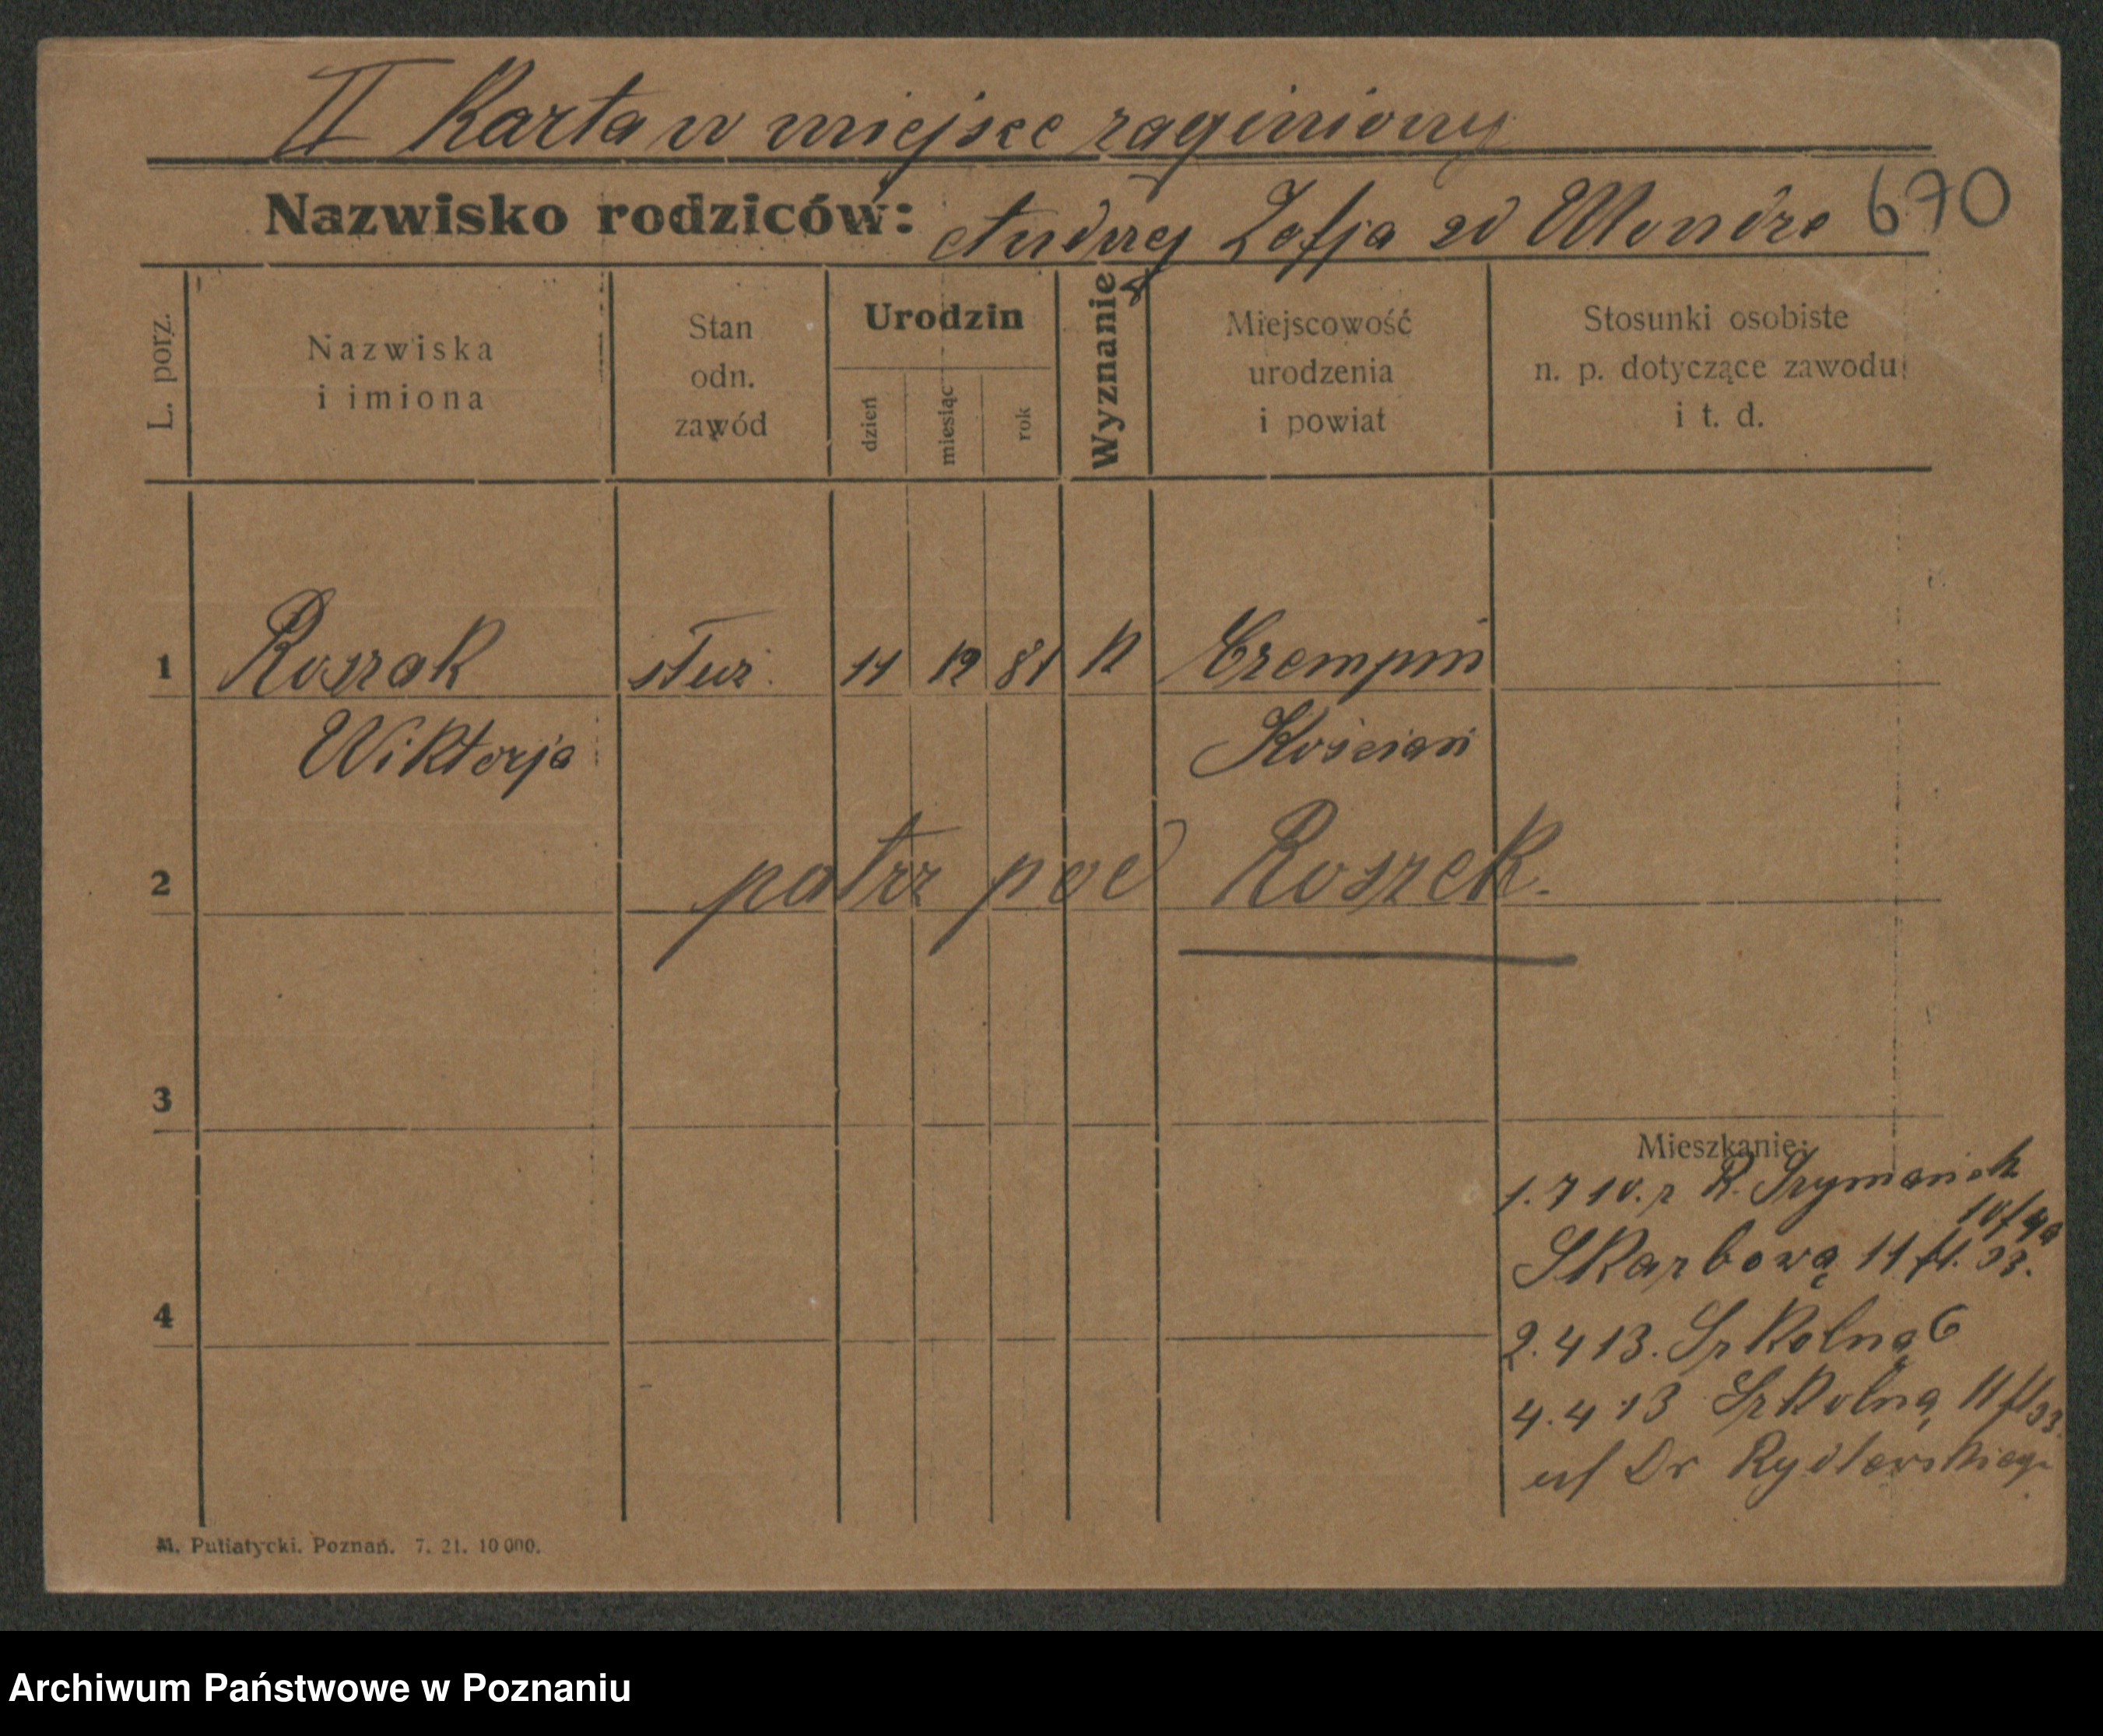 II Karta w miejsce zaginiony
Nazwisko rodziców: Andrzej Zofja zd Mondre 670
L. porz.
Nazwiska
i imiona
Stan
odn.
zawód
Urodzin
dzień
miesiąc
rok
Wyznanie
Miejscowość
urodzenia
i powiat
Stosunki osobiste
n. p. dotyczące zawodu
i t. d.
1 Roszak 11 12 81 K Crempin
Wiktorja Kościan
2 patrz pod Roszek.
3
4
Mieszkanie:
1. 7 10. z R. Szymaniak
Skarbową 11 fl. 33.
2. 4 13. Szkolną 6
4. 4 13 Szkolną 11 fl 33
Dr Rydlewskiego
M. Puliatycki. Poznań. 7. 21. 10 000.
Archiwum Państwowe w Poznaniu